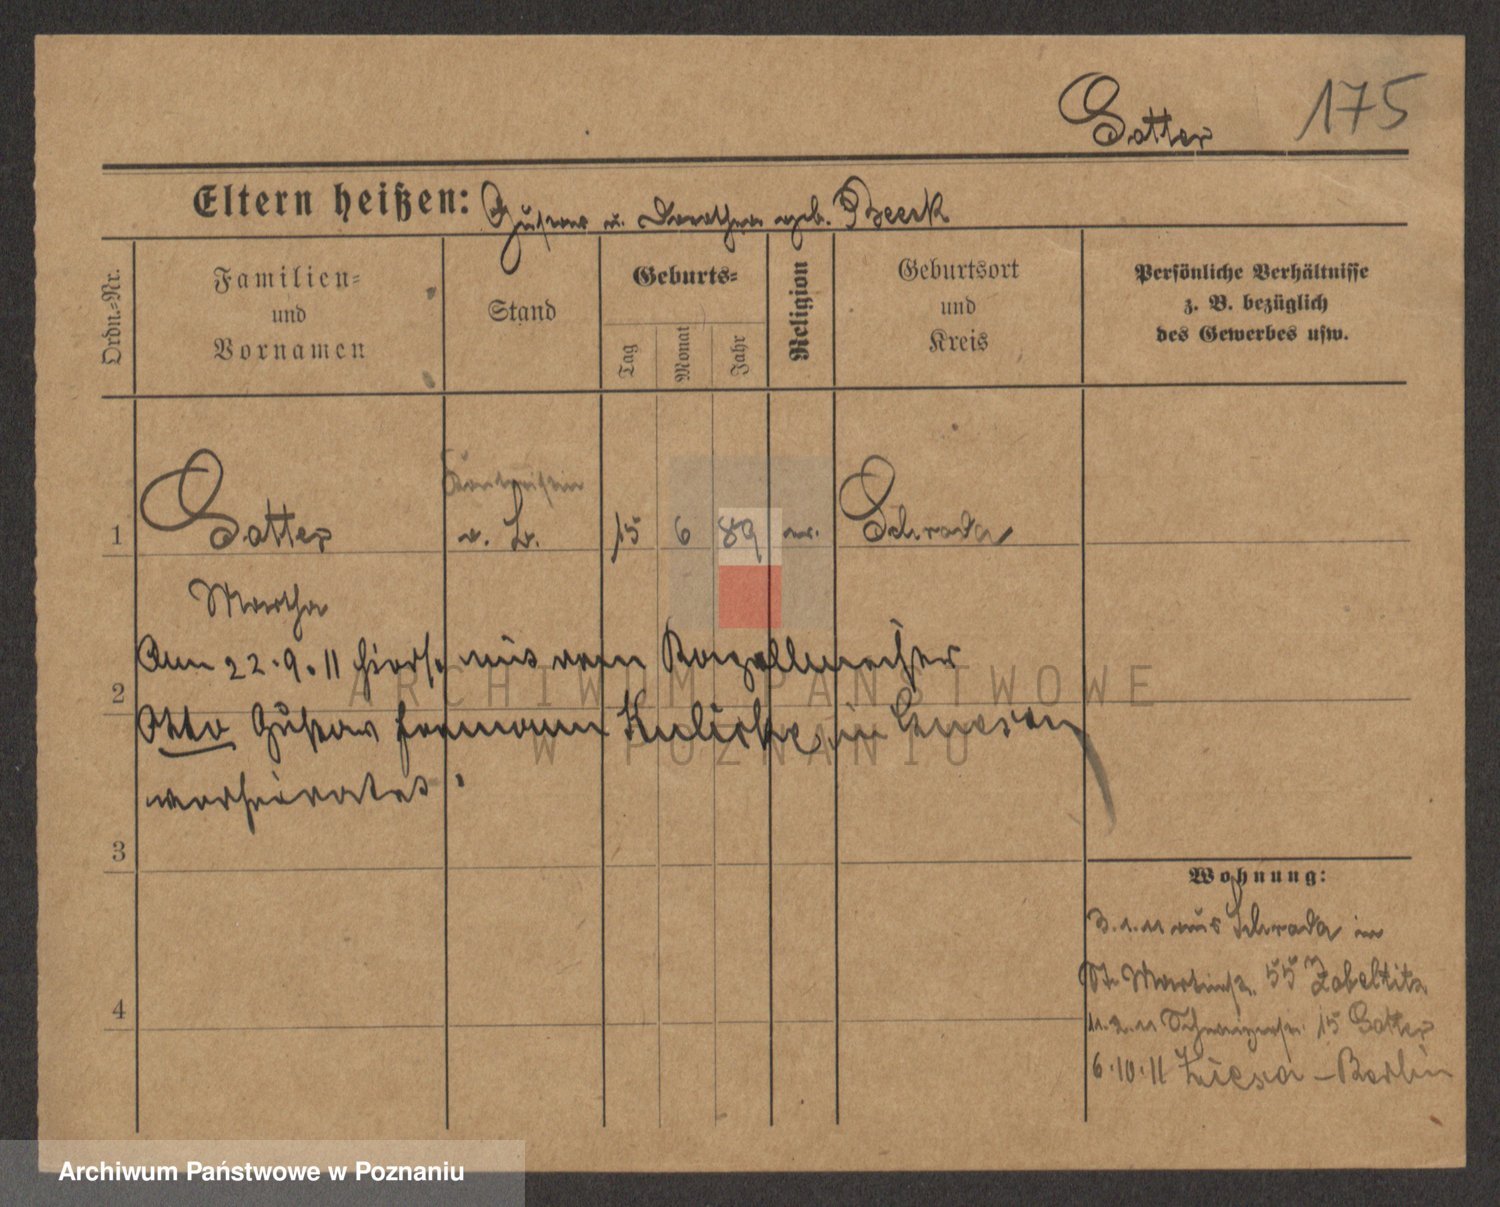 Gotter 175
Eltern heißen: Gustav u. Dorothea geb. Beerk
Ordn.-Nr.
Familien-
und
Vornamen
Stand
Geburts-
Tag
Monat
Jahr
Religion
Geburtsort
und
Kreis
Persönliche Verhältnisse
z. B. bezüglich
des Gewerbes usw.
1 Gotter v. L. 15 6 89 ev. Schroda
Martha
Am 22.9.11 hiers. mit dem
2
Otto Gustav Hermann in Gnesen
verheiratet.
3
4
Wohnung:
3.1.11 aus Schroda in
St. Martinstr. 55 Zabeltitz
11.2.11 15 Gotter
6.10.11 - Berlin
ARCHIWUM PAŃSTWOWE
W POZNANIU
Archiwum Państwowe w Poznaniu